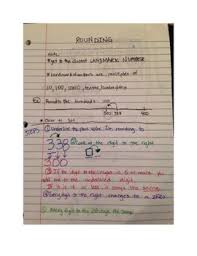 ROUNDING
Rule:
* get to the closest LANDMARK NUMBER
* Landmark numbers are multiples of
10, 100, 1000, tenths, hundredths
Ex Round to the hundreds
300 400
STEPS
① Underline the place value I'm rounding to
338 ② Look at the digit to the right
300
③ If the digit to the right is 5 or more you
add one to the underlined digit
If it is 4 or less, it stays the same
④ Every digit to the right changes to a zero
⑤ Every digit to the left stays the same